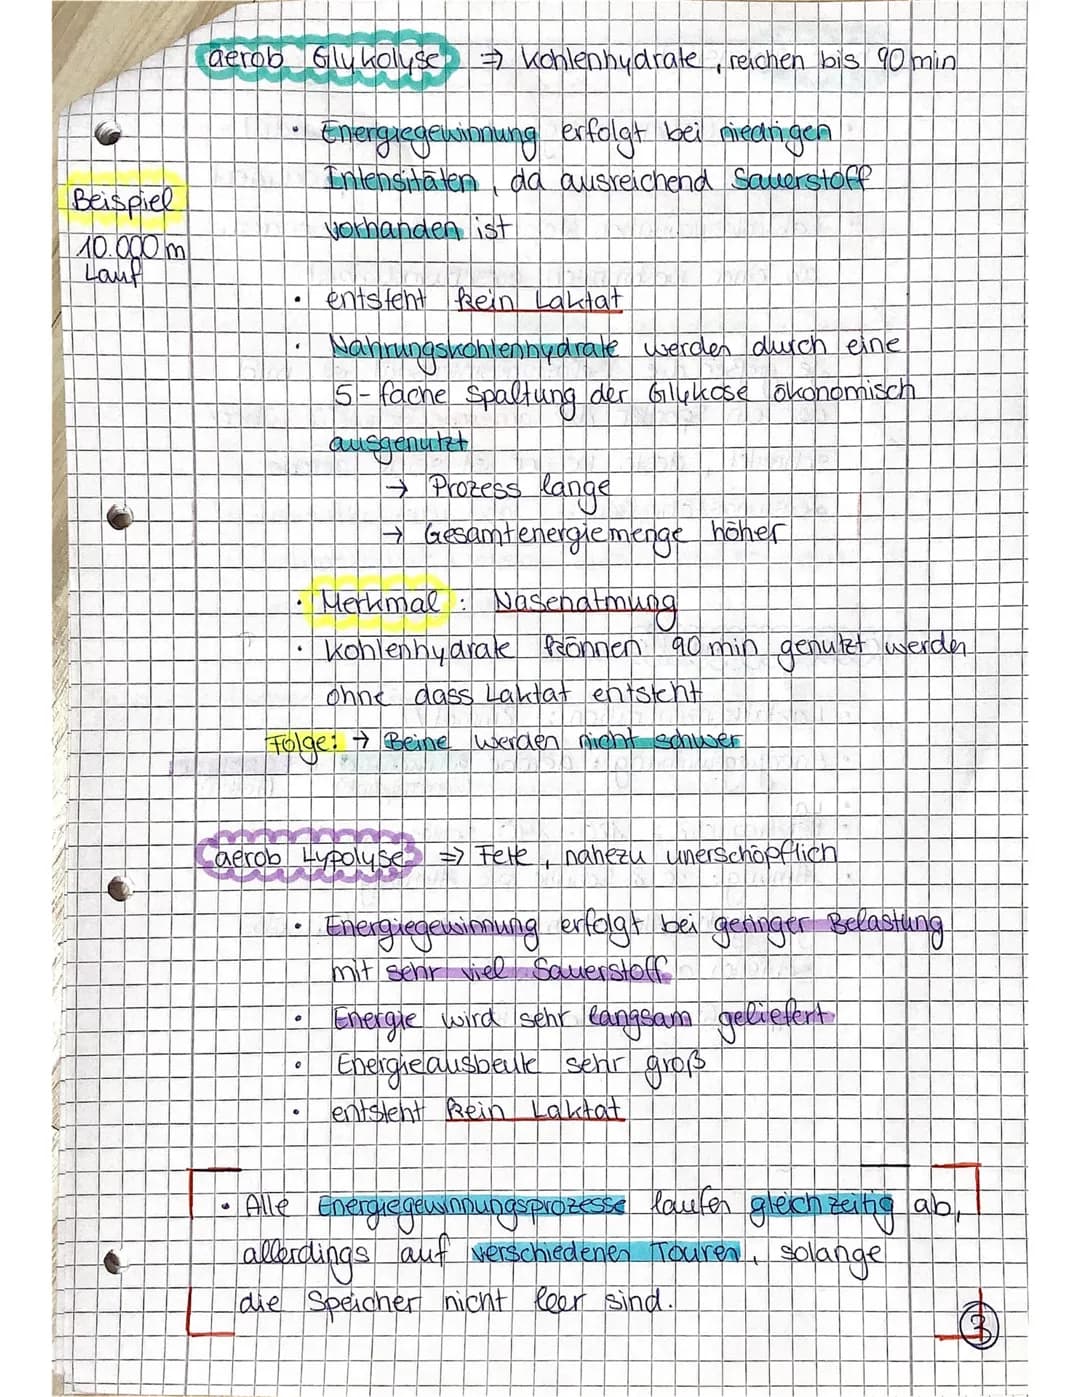 aerob Glykolyse ⇒ Kohlenhydrate, reichen bis 90 min
• Energiegewinnung erfolgt bei niedrigen
Intensitäten, da ausreichend Sauerstoff
vorhanden ist
Beispiel
10.000 m
Lauf
• entsteht kein Laktat
• Nahrungskohlenhydrate werden durch eine
5-fache Spaltung der Glykose ökonomisch
ausgenutzt
→ Prozess lange
→ Gesamtenergiemenge höher
• Merkmal: Nasenatmung
• Kohlenhydrate können 90 min genutzt werden
ohne dass Laktat entsteht
Folge: → Beine werden nicht schwer
aerob Lypolyse ⇒ Fette, nahezu unerschöpflich
• Energiegewinnung erfolgt bei geringer Belastung
mit sehr viel Sauerstoff
• Energie wird sehr langsam geliefert
• Energieausbeute sehr groß
• entsteht kein Laktat
• Alle Energiegewinnungsprozesse laufen gleichzeitig ab,
allerdings auf verschiedenen Touren, solange
die Speicher nicht leer sind.
3